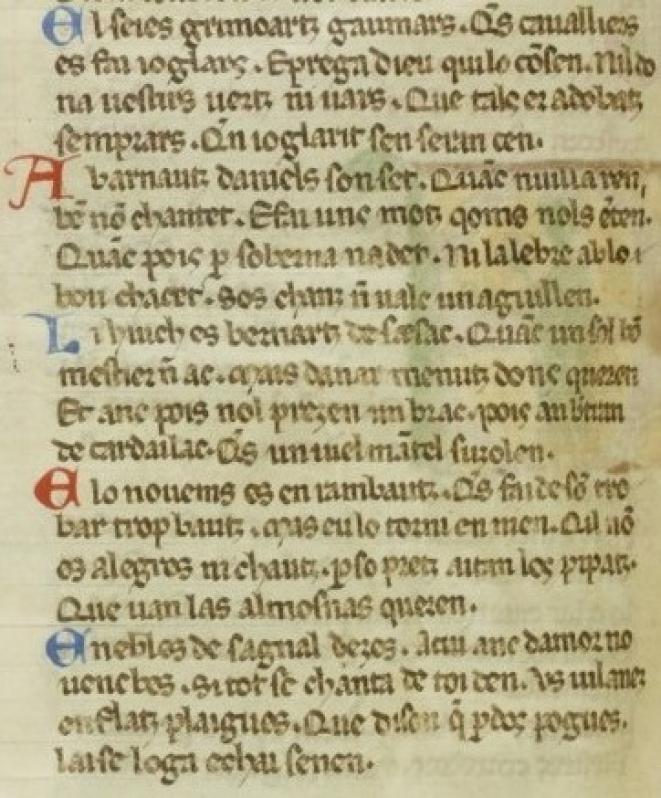 El seies grimoartz gaumars. Q̄s cauallie͛s
es fai ioglars. E prega dieu qui lo cōsen. Ni l do
na uestirs uertz ni uars. Que tals er adobatz
semprars. Q̄n ioglarit sen seran cen.
Ab arnautz daniels son set. Quāc nulla ren,
bē nō chantet. E fai uns motz qoms nols ēten.
Quāc pois p soberna nadet. Ni la lebre ab lo
bou chacet. Sos chanz n̄ uale un aguillen.
Li huich es bernartz de saisac. Quāc un sol bō
mestier n̄ ac. mais danar menutz dons queren
Et anc pois nol prezen un brac. pois an b͛tran
de cardaillac. Q̄s un uiel mātel suzolen.
E lo nouems es en rambautz. Q̄s fai de sō tro
bar trop bautz. mas eu lo torni en nien. Q̄il nō
es alegres ni chautz. p so pretz aitan los pipatz.
Que uan las almosnas queren.
En ebles de sagnal dezes. A cui anc damor no
uenc bes. Si tot se chanta de coiden. Us uilanetz
enflatz plaigues. Que dison q̄ p dos poges.
lai se loga e chai se uen.